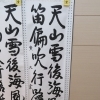 天山雪後海風
笛偏吹行路
天山雪後海風